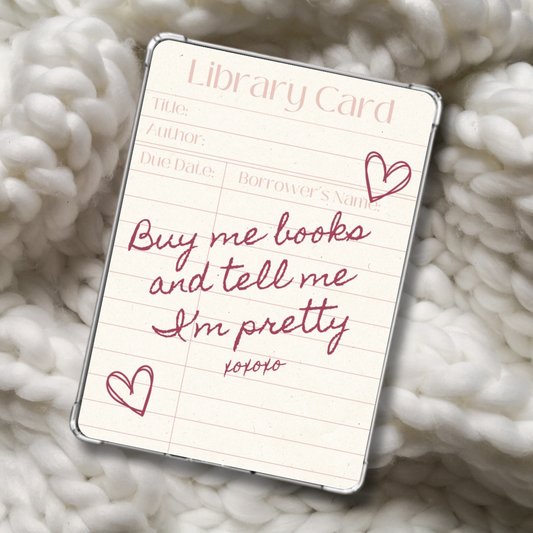 Library Card
Title:
Author:
Due Date:
Borrower's Name:
Buy me books
and tell me
I'm pretty
xoxoxo